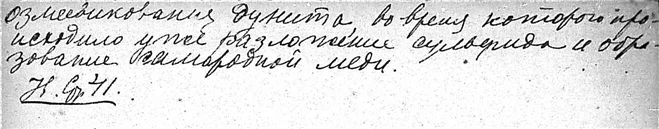 озмеевикования дунита, во время которого про-
исходило уже разложение сульфида и обра-
зование самородной меди.